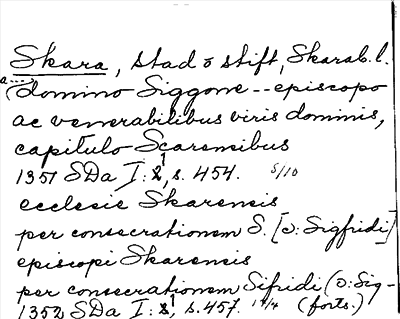 Skara, stad o stift, Skarab. l.
a....
(domino Siggone -- episcopo
ac venerabilibus viris dominis,
capitulo Scarensibus
1351 SDa I: 1, s. 454. 5/10
ecclesie Skarensis
per consecrationem S. [o: Sigfridi]
episcopi Skarensis
per consecrationem Sifridi (o: Sig-
1352 SDa I: 1, s. 457. 17/4 (forts.)